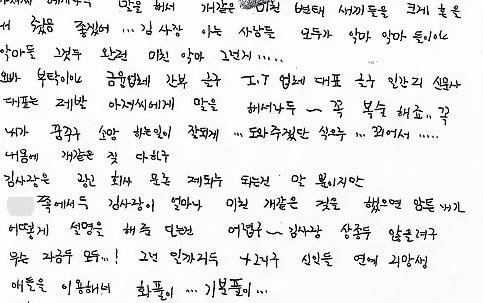 말을 해서 개같은 미친 변태 새끼들을 크게 혼을
내 줬음 좋겠어 ... 김 사장 아는 사람들 모두가 악마 악마 들이야
악마들 그것두 완전 미친 악마 그런거 .....
오빠 부탁이야 금융업체 간부 친구 I.T 업체 대표 친구 인간괴 신문사
대표는 제발 아저씨에게 말을 해서라두 ~ 꼭 복수 해죠.. 꼭
내가 꿈꾸구 소망 하는일이 잘되게 ... 도와주겠단 식으루 ... 꾀어서 .....
내몸에 개같은 짓 다하구
김사장은 광고 회사 모든 제의두 되는건 말 뿐이지만
쪽에서두 김사장이 얼마나 미친 개같은 짓을 했으면 암튼 내가
어떻게 설명을 해 주 다는건 어렵구 ~ 김사장 상종두 않을려구
무슨 자금두 모두...! 그넘 인까리두 신인들 연예 지망생
애들을 이용해서 화풀이 ... 기분풀이 ...